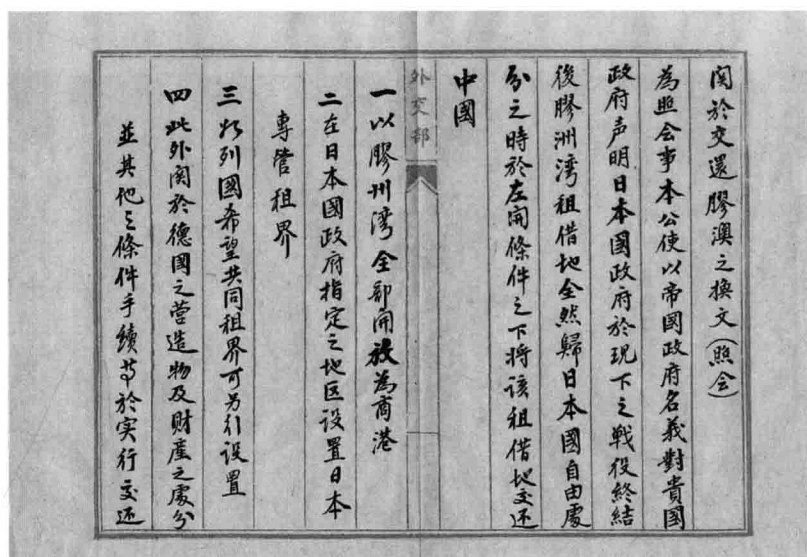 関於交還膠澳之換文(照会)
為照会事本公使以帝國政府名義對貴國
政府声明日本國政府於現下之戦役終結
後膠洲湾租借地全然歸日本國自由處
分之時於左開條件之下将該租借地交还
中國
外交部
一以膠州湾全部開放為商港
二在日本國政府指定之地区設置日本
專管租界
三如列國希望共同租界可另行設置
四此外関於德國之营造物及財產之處分
並其他之條件手續等於实行交还